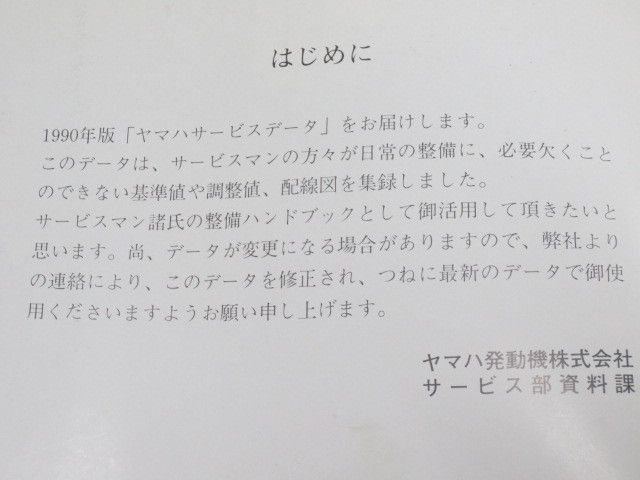 はじめに
1990年版「ヤマハサービスデータ」をお届けします。
このデータは、サービスマンの方々が日常の整備に、必要欠くこと
のできない基準値や調整値、配線図を集録しました。
サービスマン諸氏の整備ハンドブックとして御活用して頂きたいと
思います。尚、データが変更になる場合がありますので、弊社より
の連絡により、このデータを修正され、つねに最新のデータで御使
用くださいますようお願い申し上げます。
ヤマハ発動機株式会社
サービス部資料課